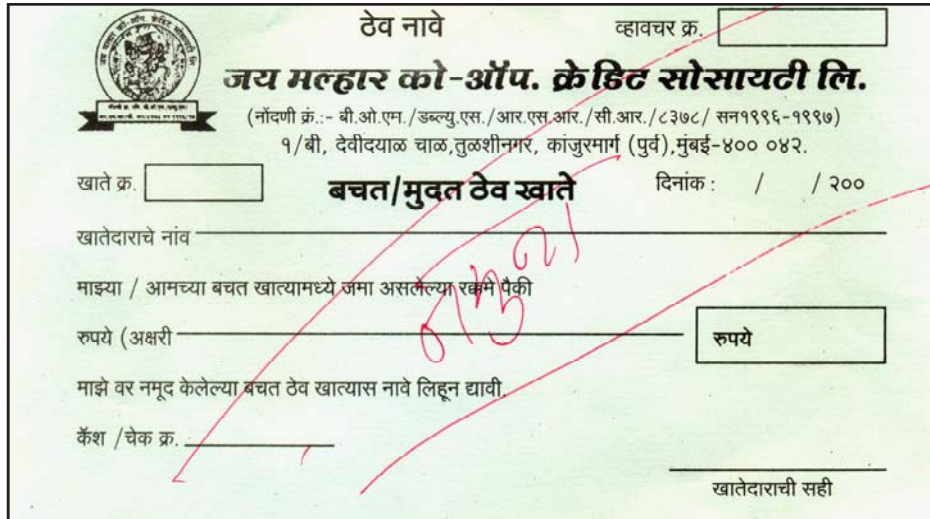 ठेव नावे
व्हावचर क्र.
जय मल्हार को-ऑप. क्रेडिट सोसायटी लि.
(नोंदणी क्रं.:- बी.ओ.एम./डब्ल्यु.एस./आर.एस.आर./सी.आर./८३७८/ सन१९९६-१९९७)
१/बी, देवीदयाळ चाळ,तुळशीनगर, कांजुरमार्ग (पुर्व),मुंबई-४०० ०४२.
खाते क्र.
बचत/मुदत ठेव खाते
दिनांक : / / २००
खातेदाराचे नांव
नमुना
माझ्या / आमच्या बचत खात्यामध्ये जमा असलेल्या रक्कमे पैकी
रुपये (अक्षरी
रुपये
माझे वर नमूद केलेल्या बचत ठेव खात्यास नावे लिहून द्यावी.
कॅश /चेक क्र.
खातेदाराची सही